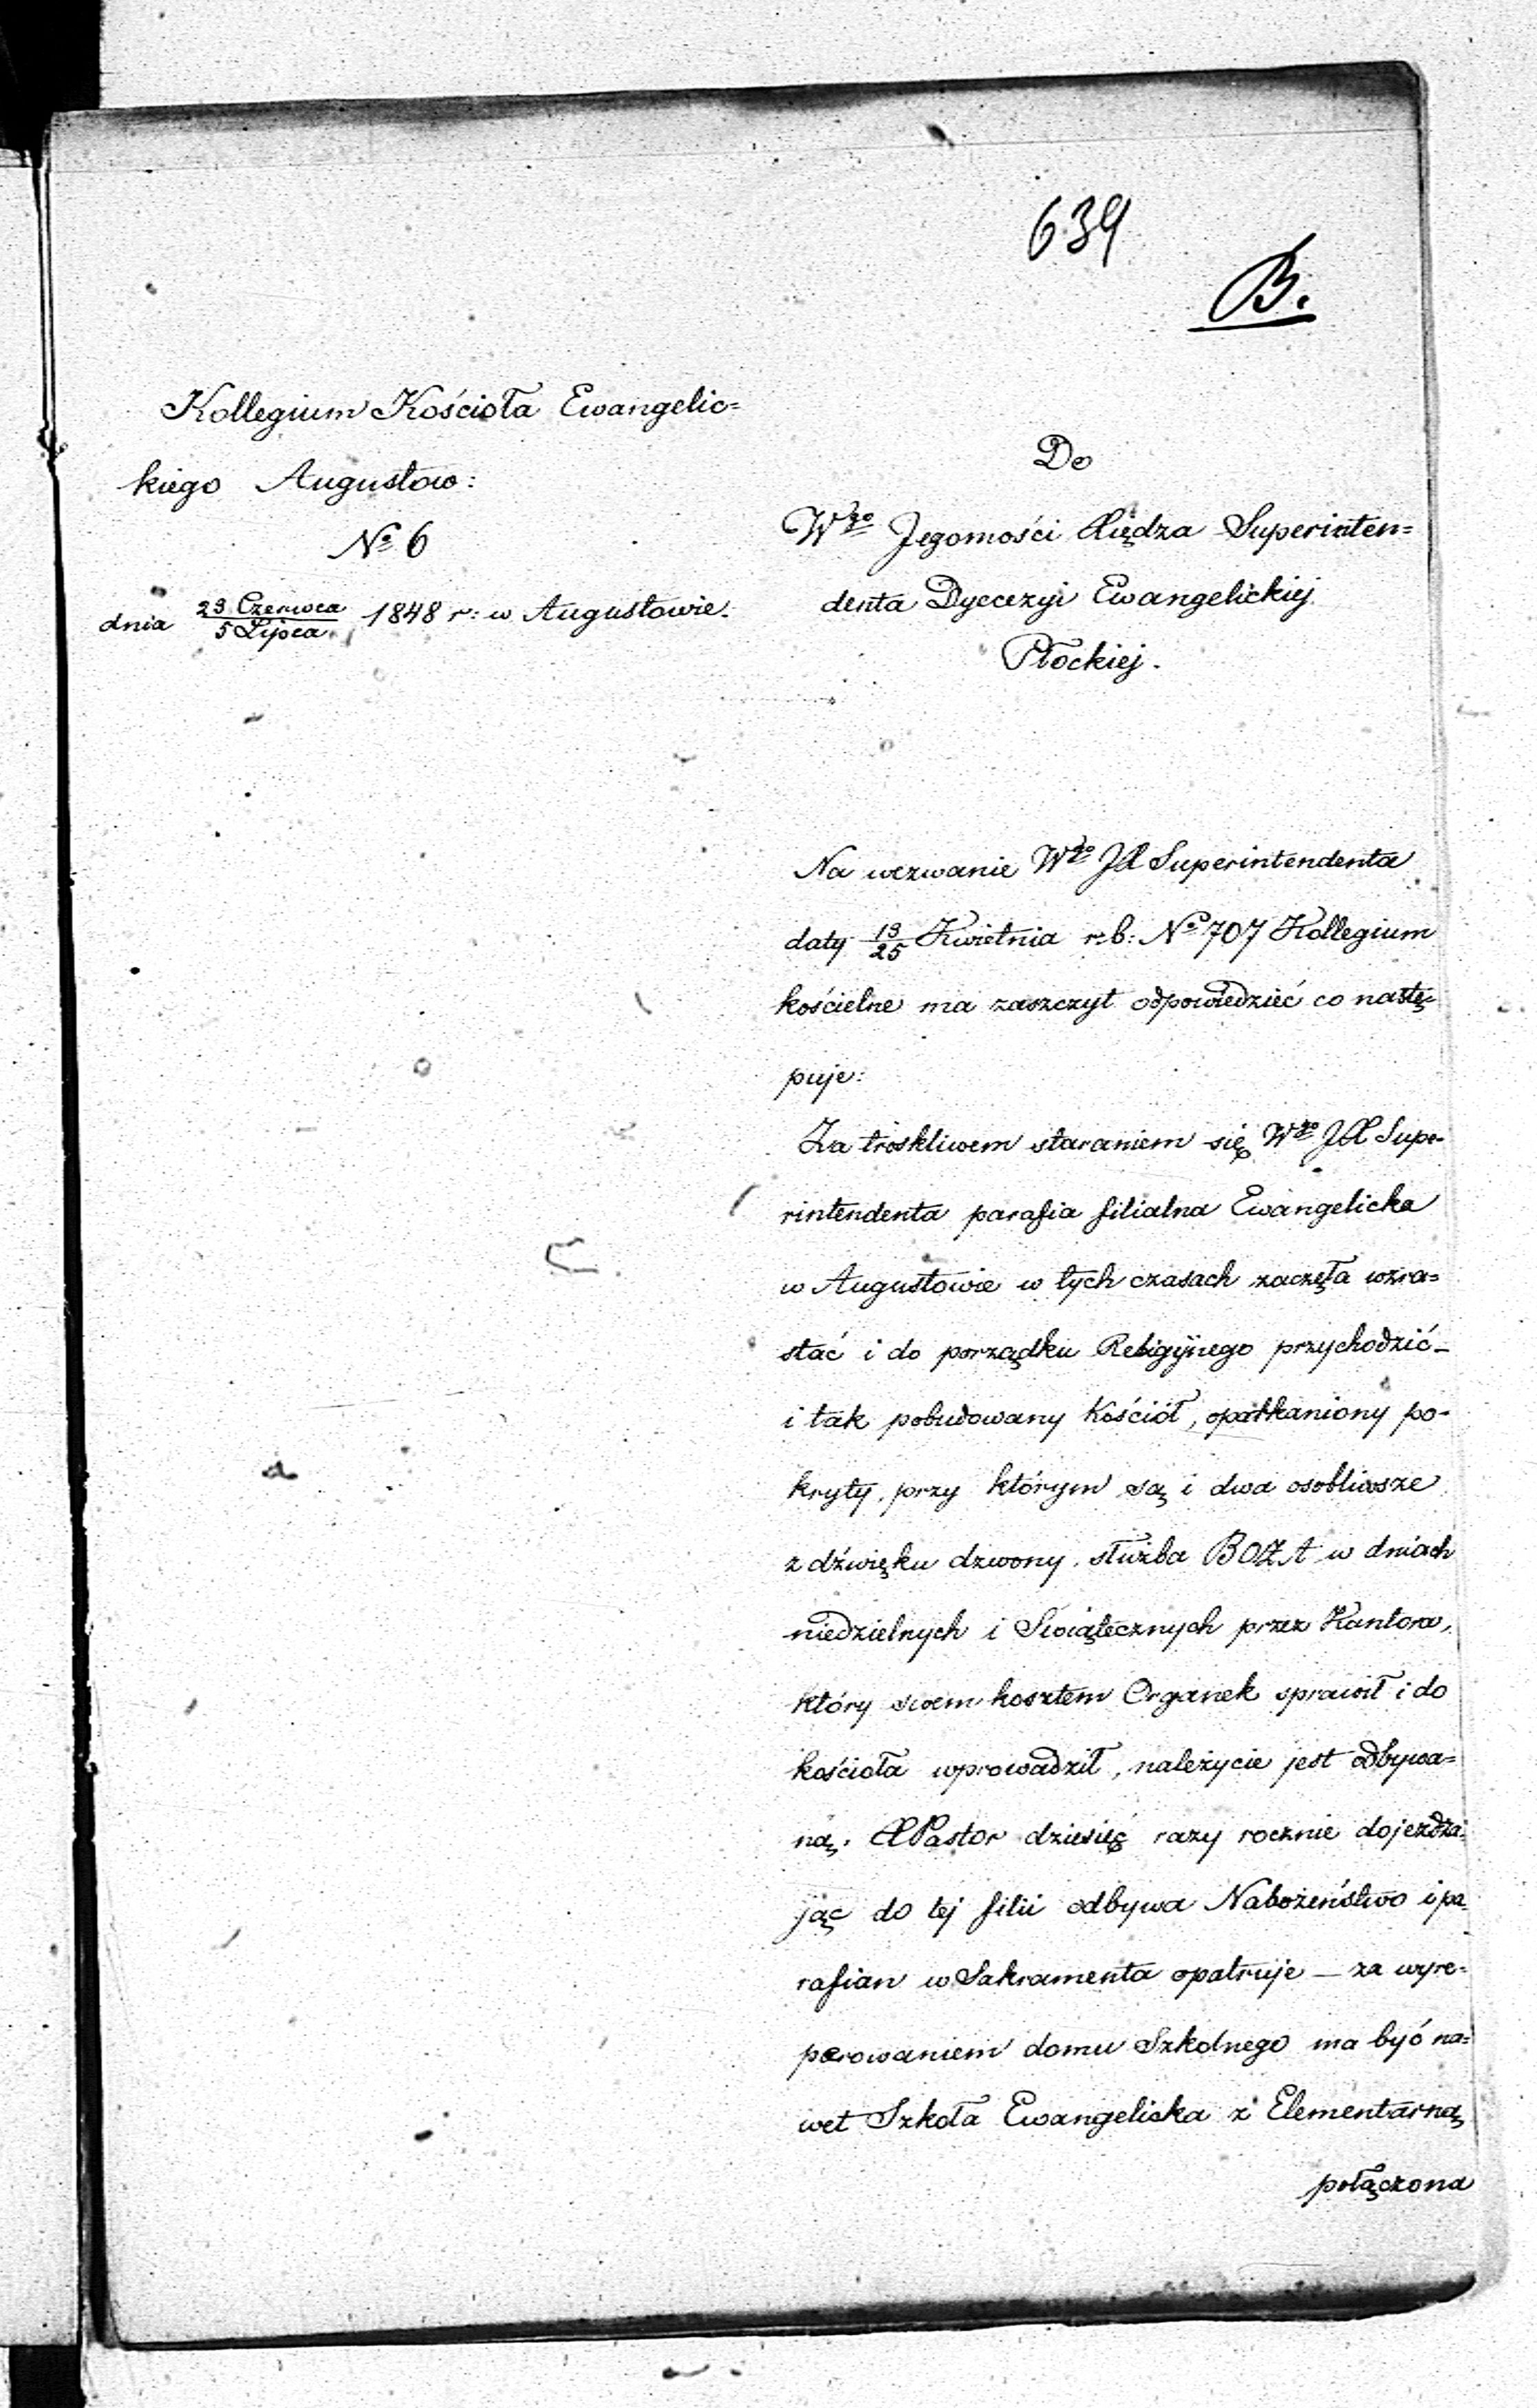 639
B.
Kollegium Kościoła Ewangelic=
kiego Augustow:
№ 6
dnia 23 Czerwca / 5 Lipca 1848 r: w Augustowie.
Do
Wgo Jegomości Xiędza Superinten=
denta Dyecezyi Ewangelickiej
Płockiej.
Na wezwanie Wgo JX Superintendenta
daty 13/25 Kwietnia r. b: № 707 Kollegium
kościelne ma zaszczyt odpowiedzieć co nastę-
puje:
Za troskliwem staraniem się Wgo JX Supe-
rintendenta parafia filialna Ewangelicka
w Augustowie w tych czasach zaczęła wzra=
stać i do porządku Religijnego przychodzić –
i tak pobudowany Kościół, oparkaniony po-
kryty, przy którym są i dwa osobliwsze
z dźwięku dzwony, służba BOZA w dniach
niedzielnych i Świątecznych przez Kantora,
który swem kosztem Organek sprawił i do
kościoła wprowadził, należycie jest odbywa=
ną. XPastor dziesięć razy rocznie dojeżdża=
jąc do tej filii odbywa Nabożeństwo i pa-
rafian w Sakramenta opatruje – za wyre-
parowaniem domu Szkolnego ma być na=
wet Szkoła Ewangelicka z Elementarną
połączona